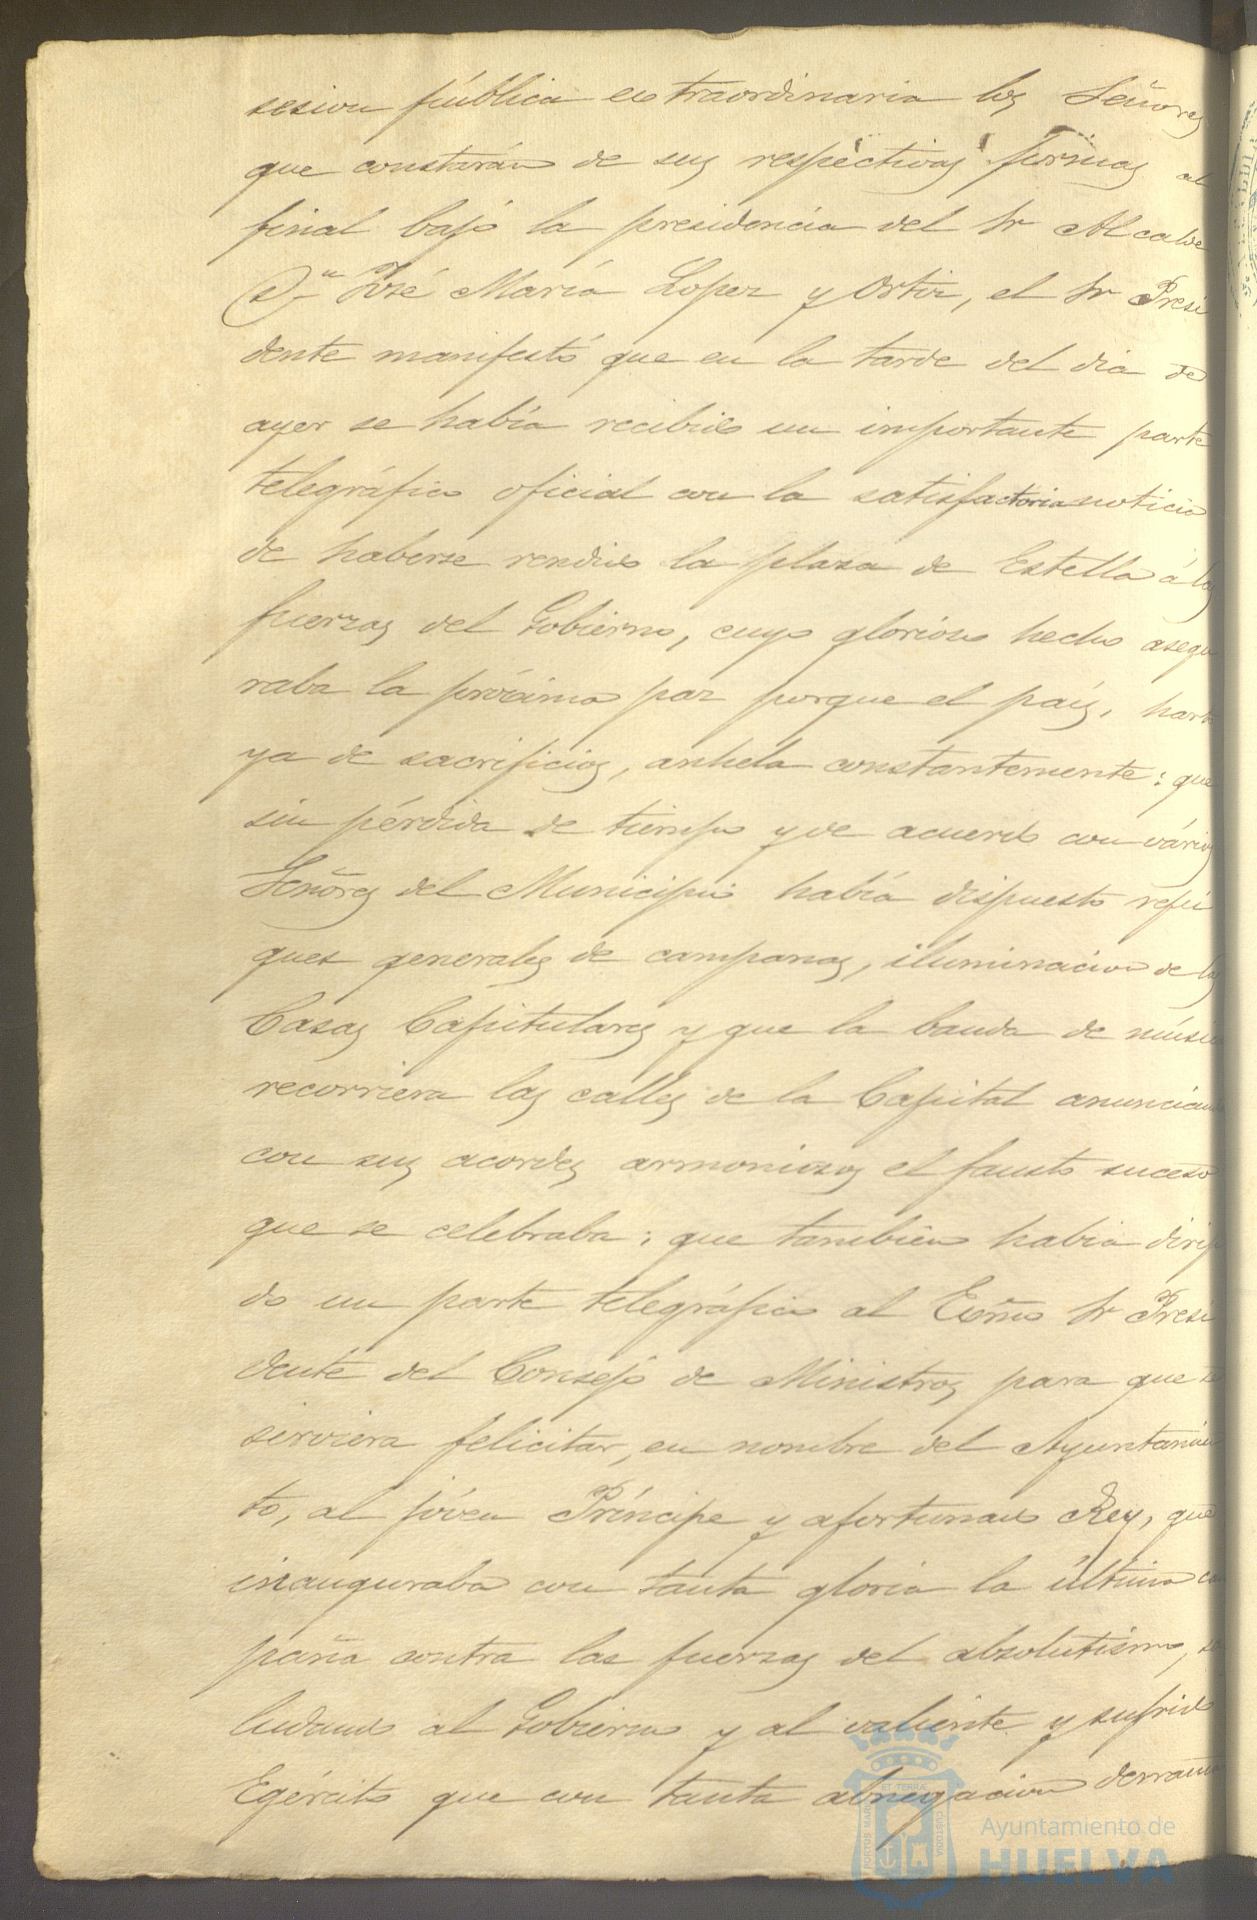 sesion pública extraordinaria los Señores
que constarán de sus respectivas firmas al
final bajo la presidencia del Sr Alcalde
Dn José María Lopez y Ortiz, el Sr Presi
dente manifestó que en la tarde del dia de
ayer se había recibido un importante parte
telegráfico oficial con la satisfactoria noticia
de haberse rendido la plaza de Estella á las
fuerzas del Gobierno, cuyo glorioso hecho asegu
raba la próxima paz porque el país, harto
ya de sacrificios, anhela constantemente: que
sin pérdida de tiempo y de acuerdo con vários
Señores del Municipio había dispuesto repi
ques generales de campanas, iluminacion de las
Casas Capitulares y que la banda de músic
recorriera las calles de la Capital anuncian
con sus acordes armoniosos el fausto suceso
que se celebraba; que tambien habia dirigi
do un parte telegráfico al Exmo Sr Presi
dente del Consejo de Ministros para que se
sirviera felicitar, en nombre del Ayuntamien
to, al jóven Príncipe y afortunado Rey, que
inauguraba con tanta gloria la última cam
paña contra las fuerzas del absolutismo, sa
ludando al Gobierno y al valiente y sufrido
Egército que con tanta abnegacion derrama
Ayuntamiento de
HUELVA
PORTUS MARIS
ET TERRAE
CUSTODIA